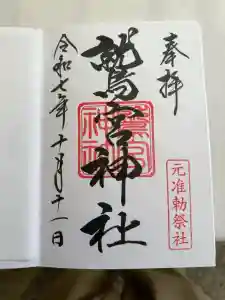 奉拝
元准勅祭社
鷲宮神社
鷲宮神社
令和七年十月十一日